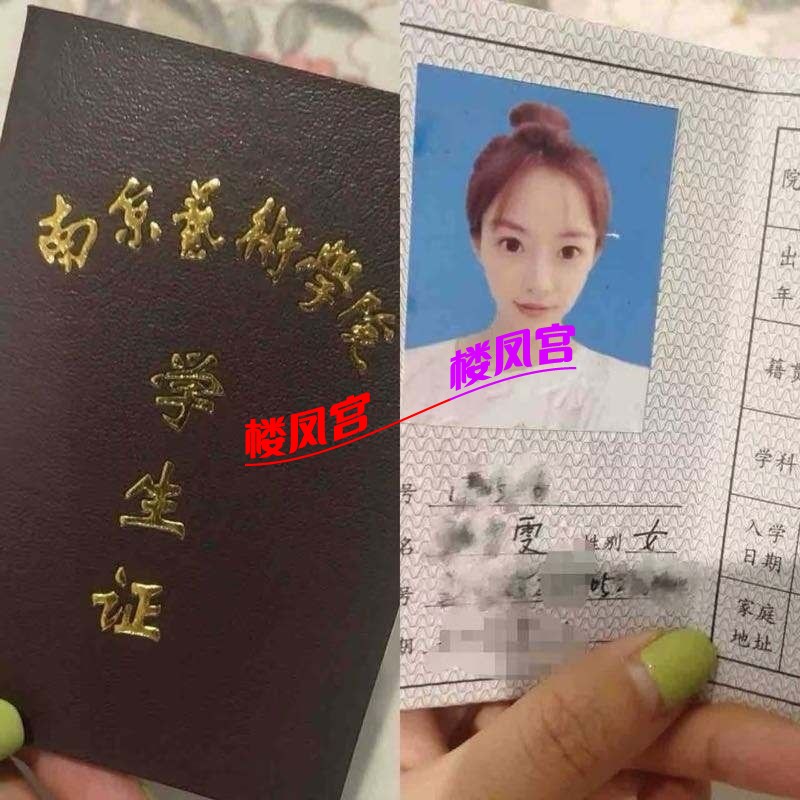 南京藝術學金
学
生
证
楼凤宫
楼凤宫
院
出
年
籍贯
学科
号
名 雯 性别 女
入学
日期
号 05
期
家庭
地址